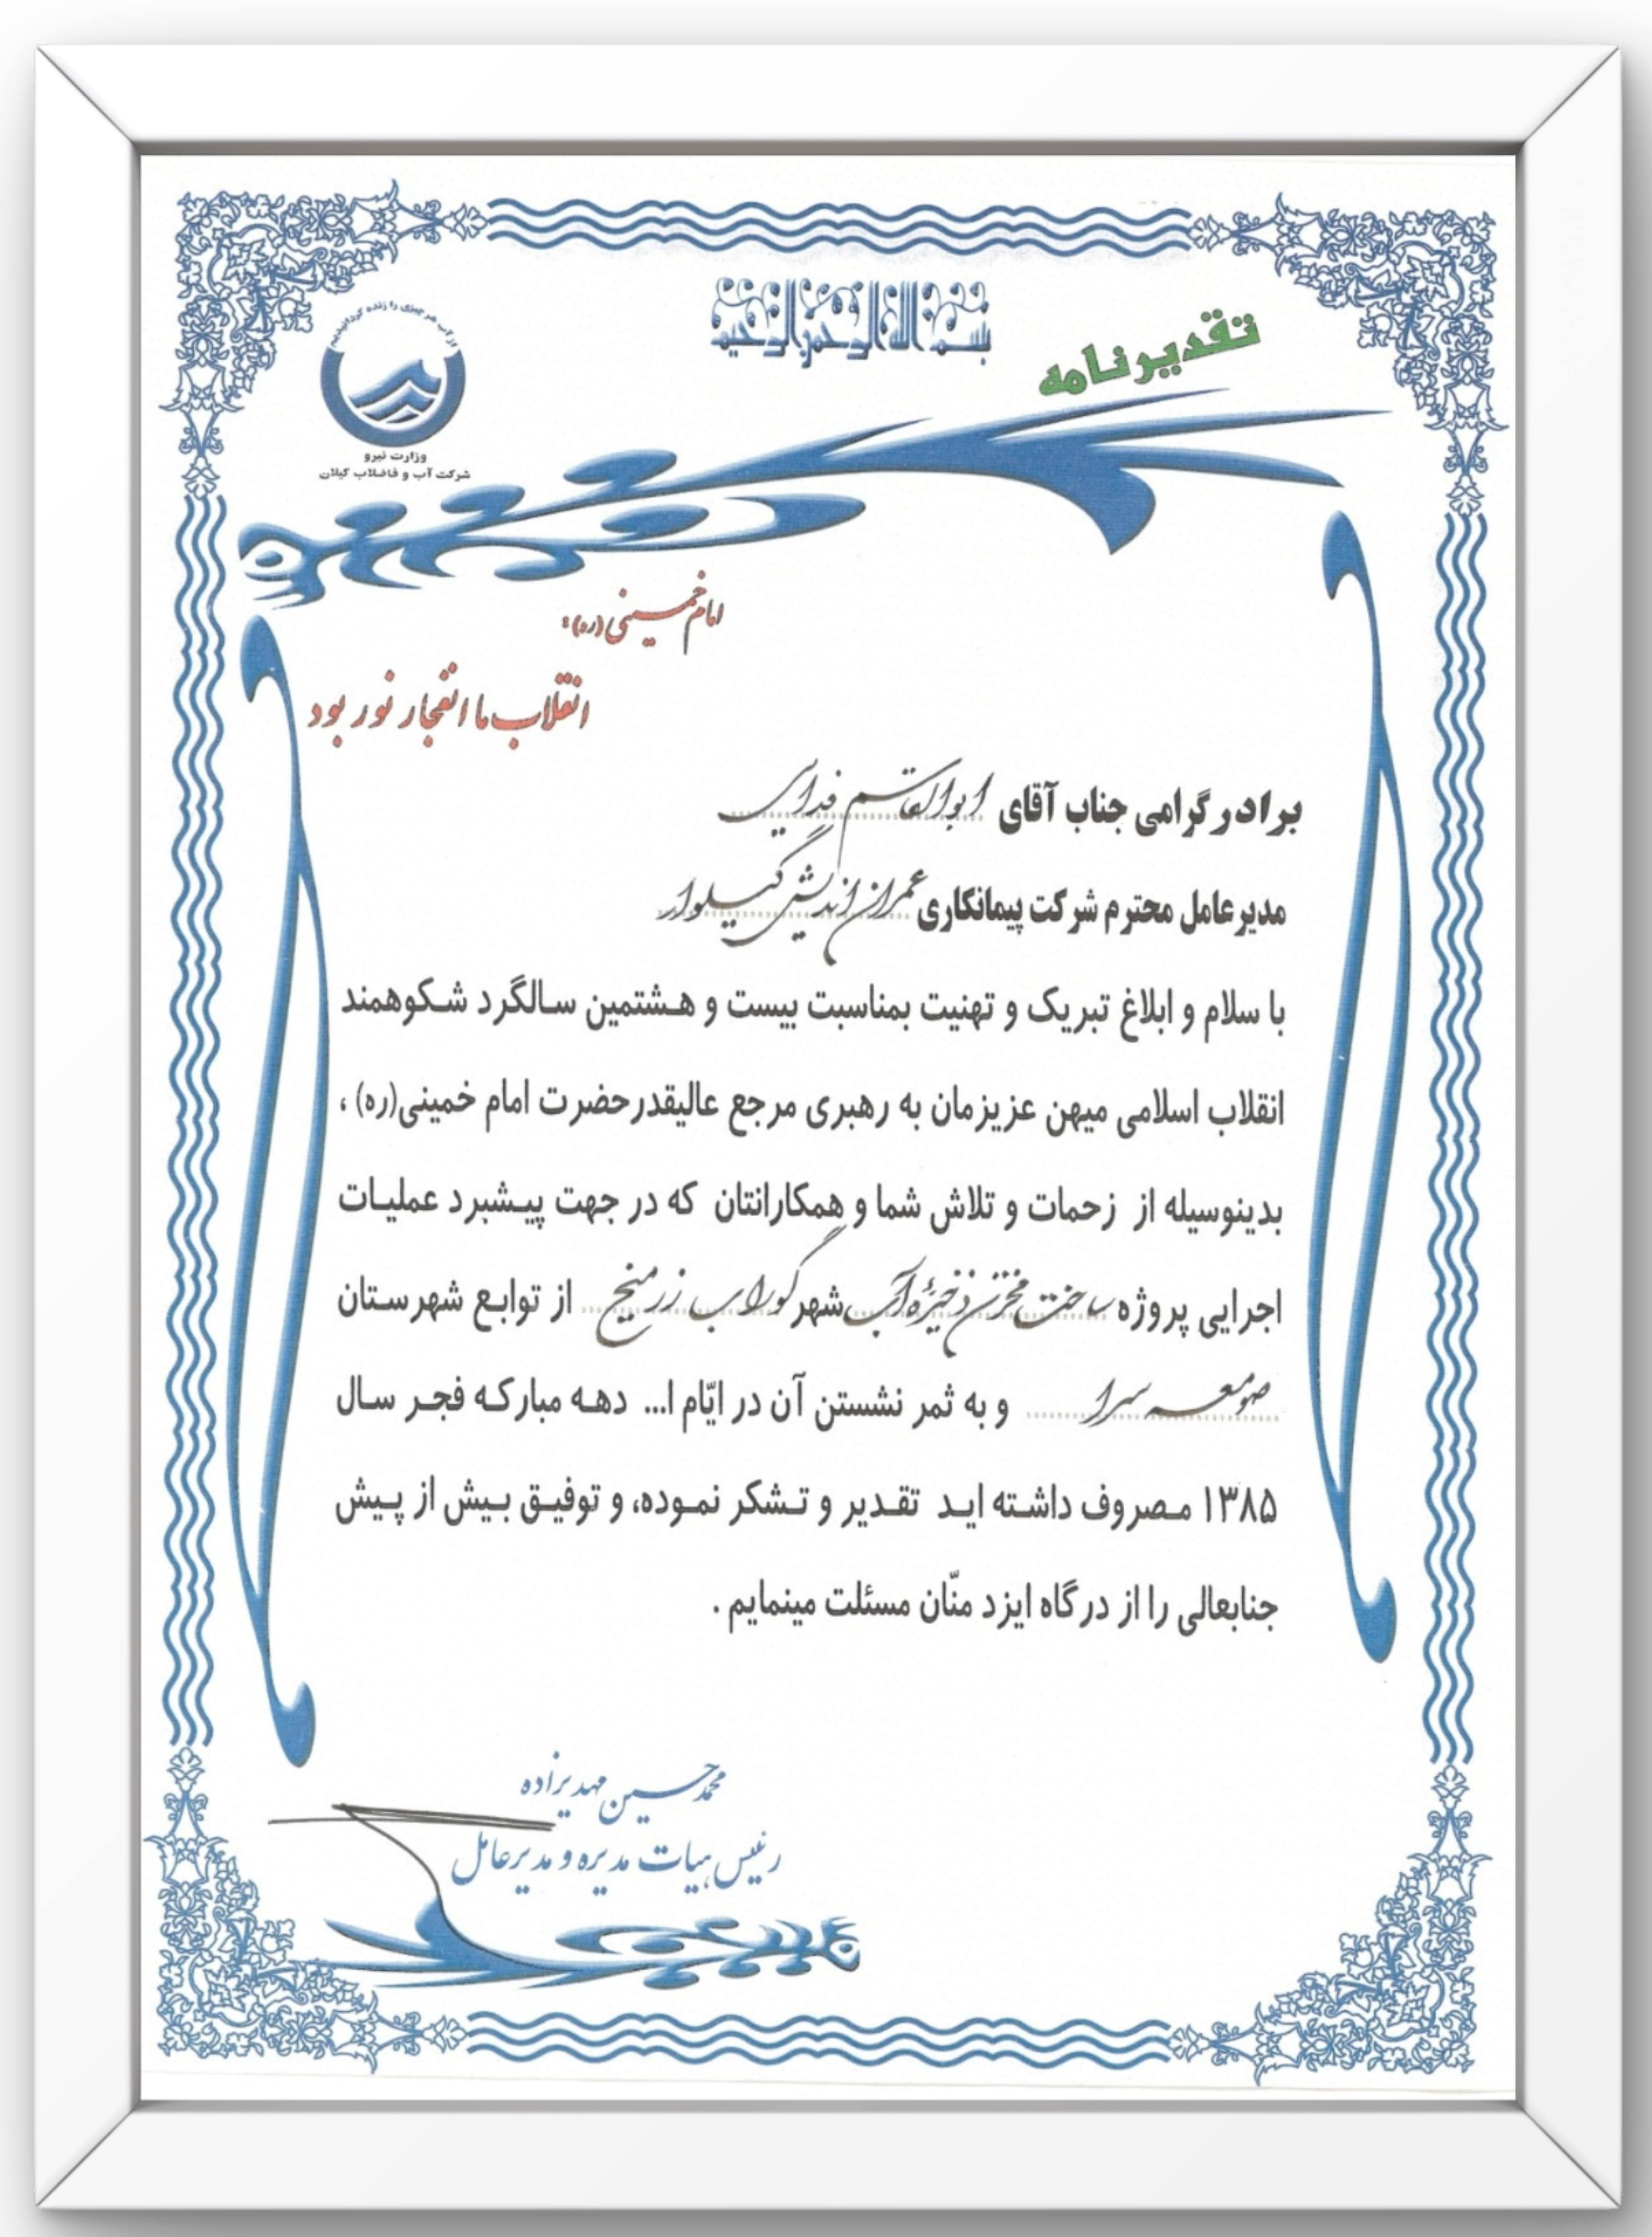 بسم الله الرحمن الرحیم
تقدیرنامه
از آب هر چیزی را زنده گردانیدیم
وزارت نیرو
شرکت آب و فاضلاب گیلان
امام خمینی (ره):
انقلاب ما انفجار نور بود
برادر گرامی جناب آقای ابوالقاسم فدایی
مدیرعامل محترم شرکت پیمانکاری عمران اندیش گیلوار
با سلام و ابلاغ تبریک و تهنیت بمناسبت بیست و هشتمین سالگرد شکوهمند
انقلاب اسلامی میهن عزیزمان به رهبری مرجع عالیقدرحضرت امام خمینی(ره) ،
بدینوسیله از زحمات و تلاش شما و همکارانتان که در جهت پیشبرد عملیات
اجرایی پروژه ساخت مخزن ذخیره آب شهر گوراب زرمیخ از توابع شهرستان
صومعه سرا و به ثمر نشستن آن در ایّام ا... دهه مبارکه فجر سال
۱۳۸۵ مصروف داشته اید تقدیر و تشکر نموده، و توفیق بیش از پیش
جنابعالی را از درگاه ایزد منّان مسئلت مینمایم .
محمد حسین مهدیزاده
رئیس هیات مدیره و مدیرعامل